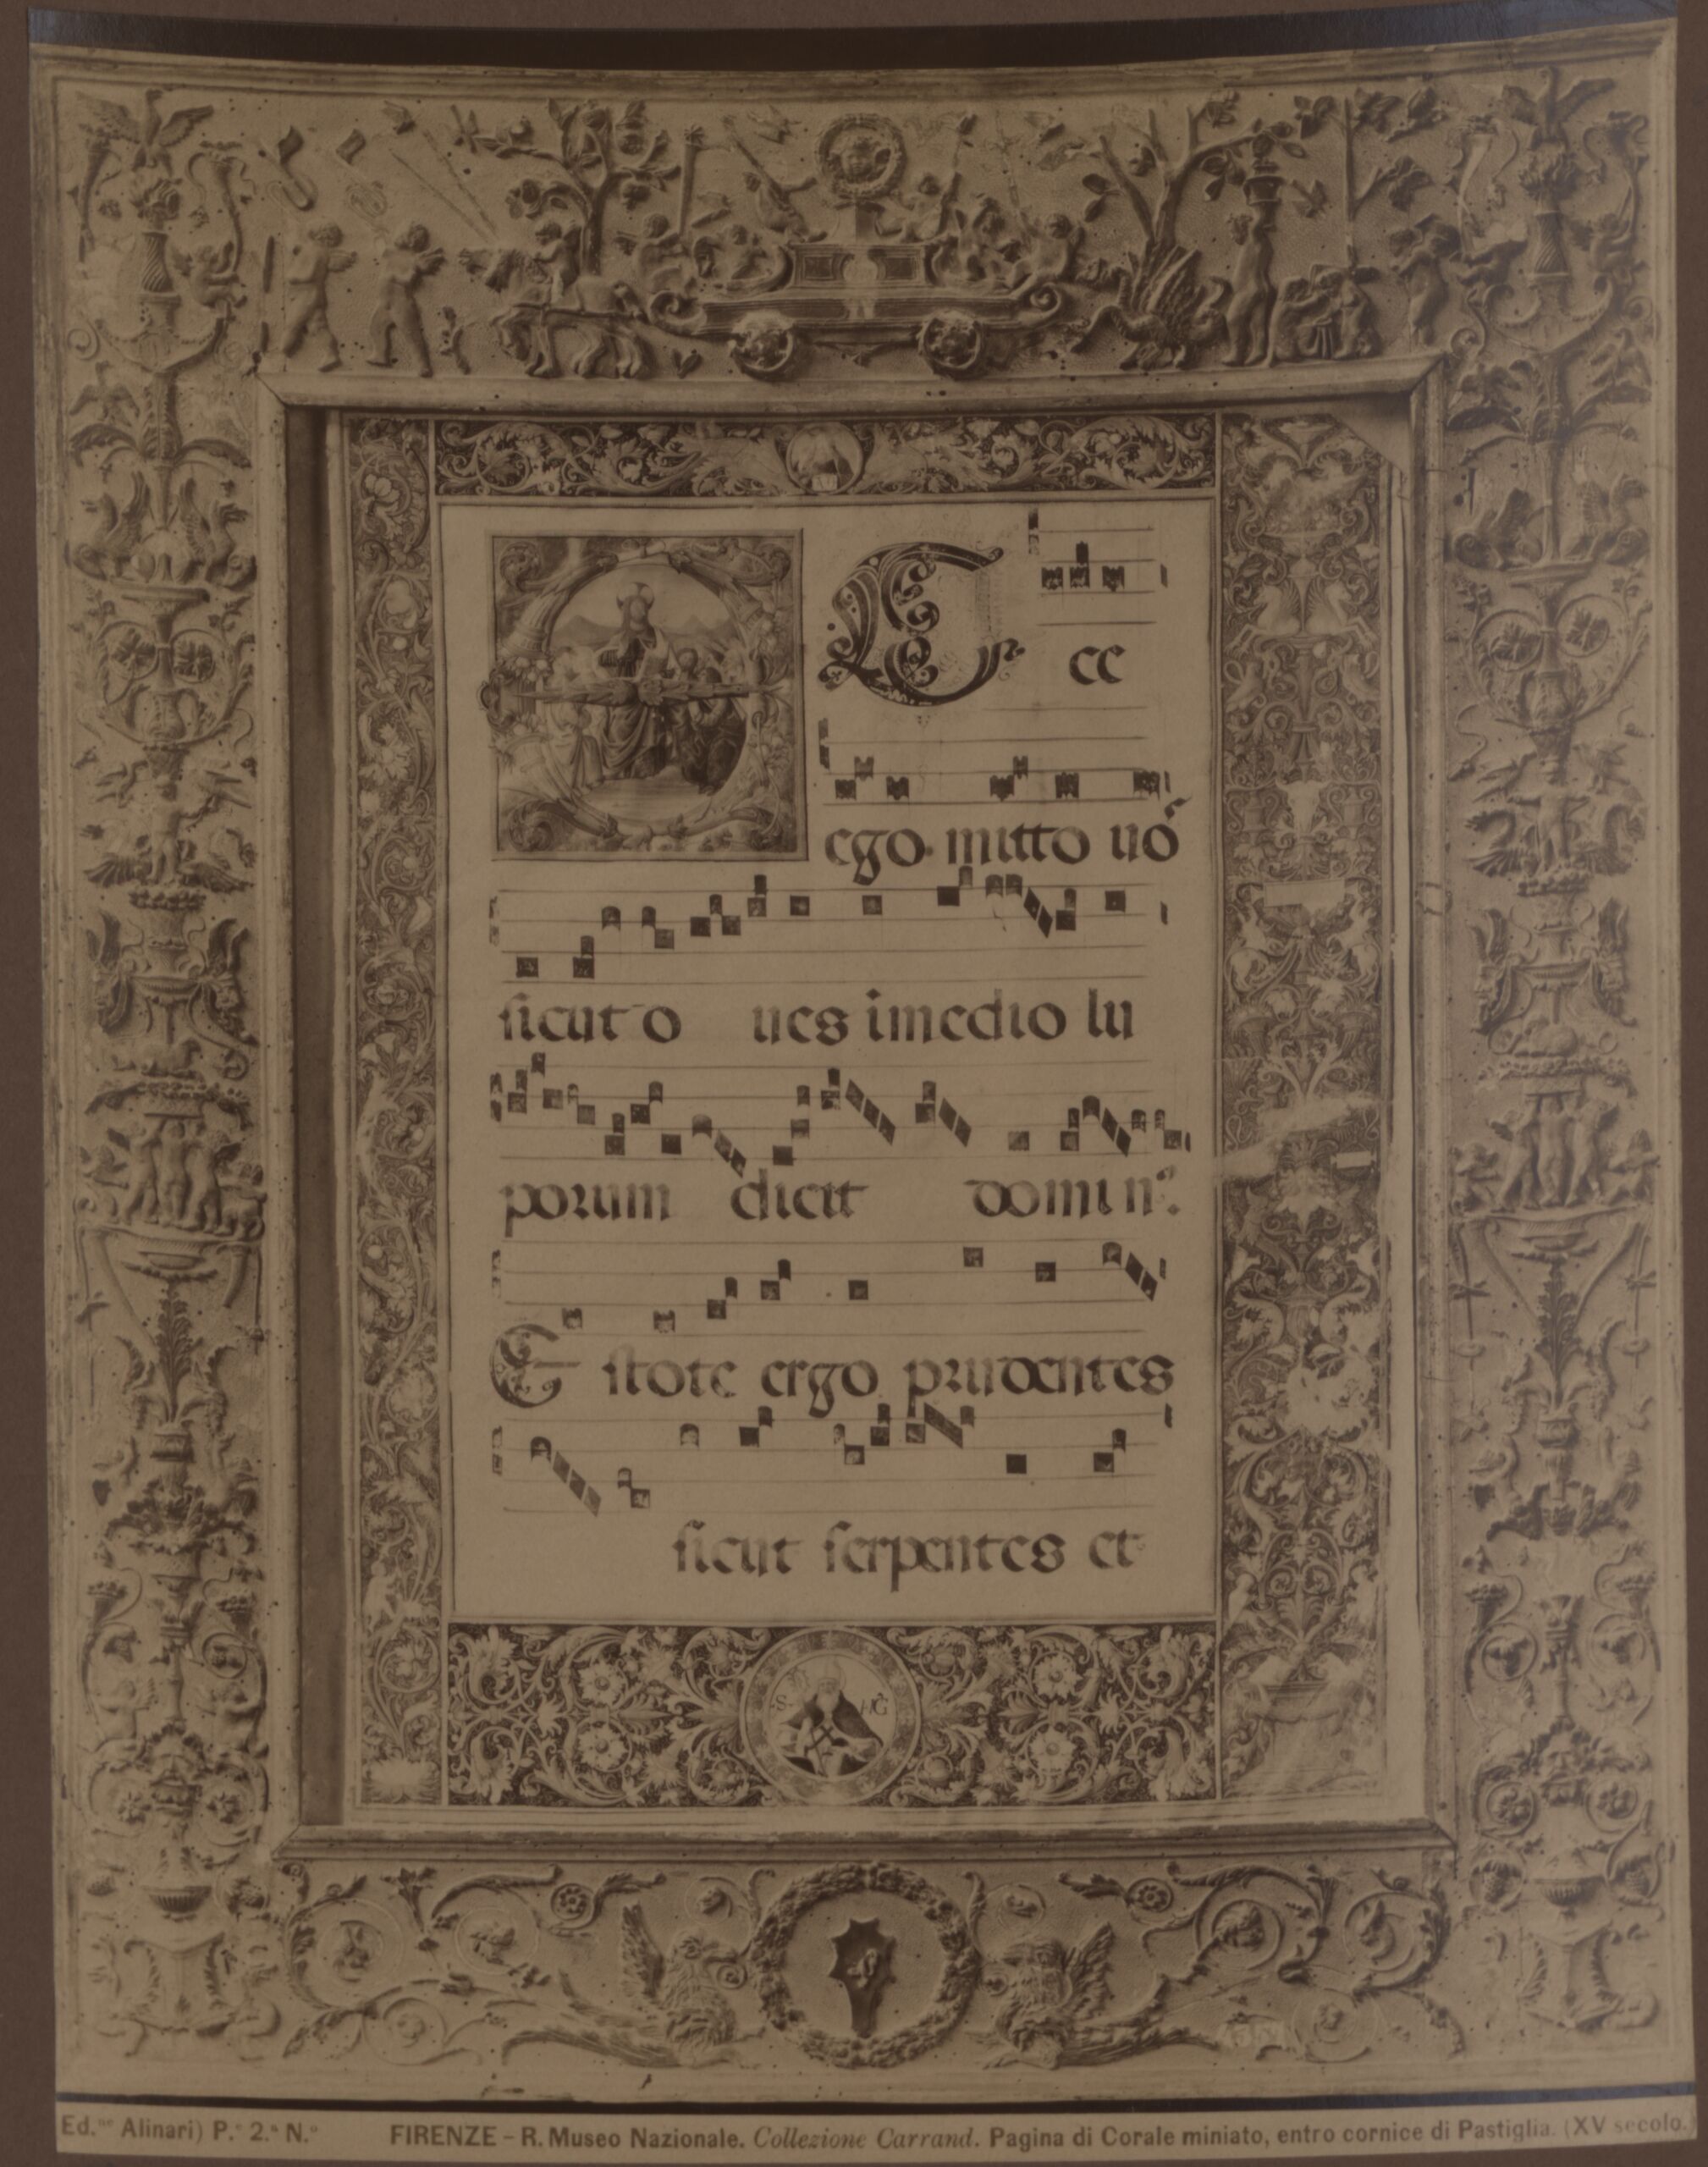 E cce
ego mitto uó
sicut o ues imedio lu
porum dicit domin⁹.
Estote ergo prudentes
sicut serpentes et
S HG
Ed.ne Alinari) P.e 2.a N.o FIRENZE – R. Museo Nazionale. Collezione Carrand. Pagina di Corale miniato, entro cornice di Pastiglia. (XV secolo.)